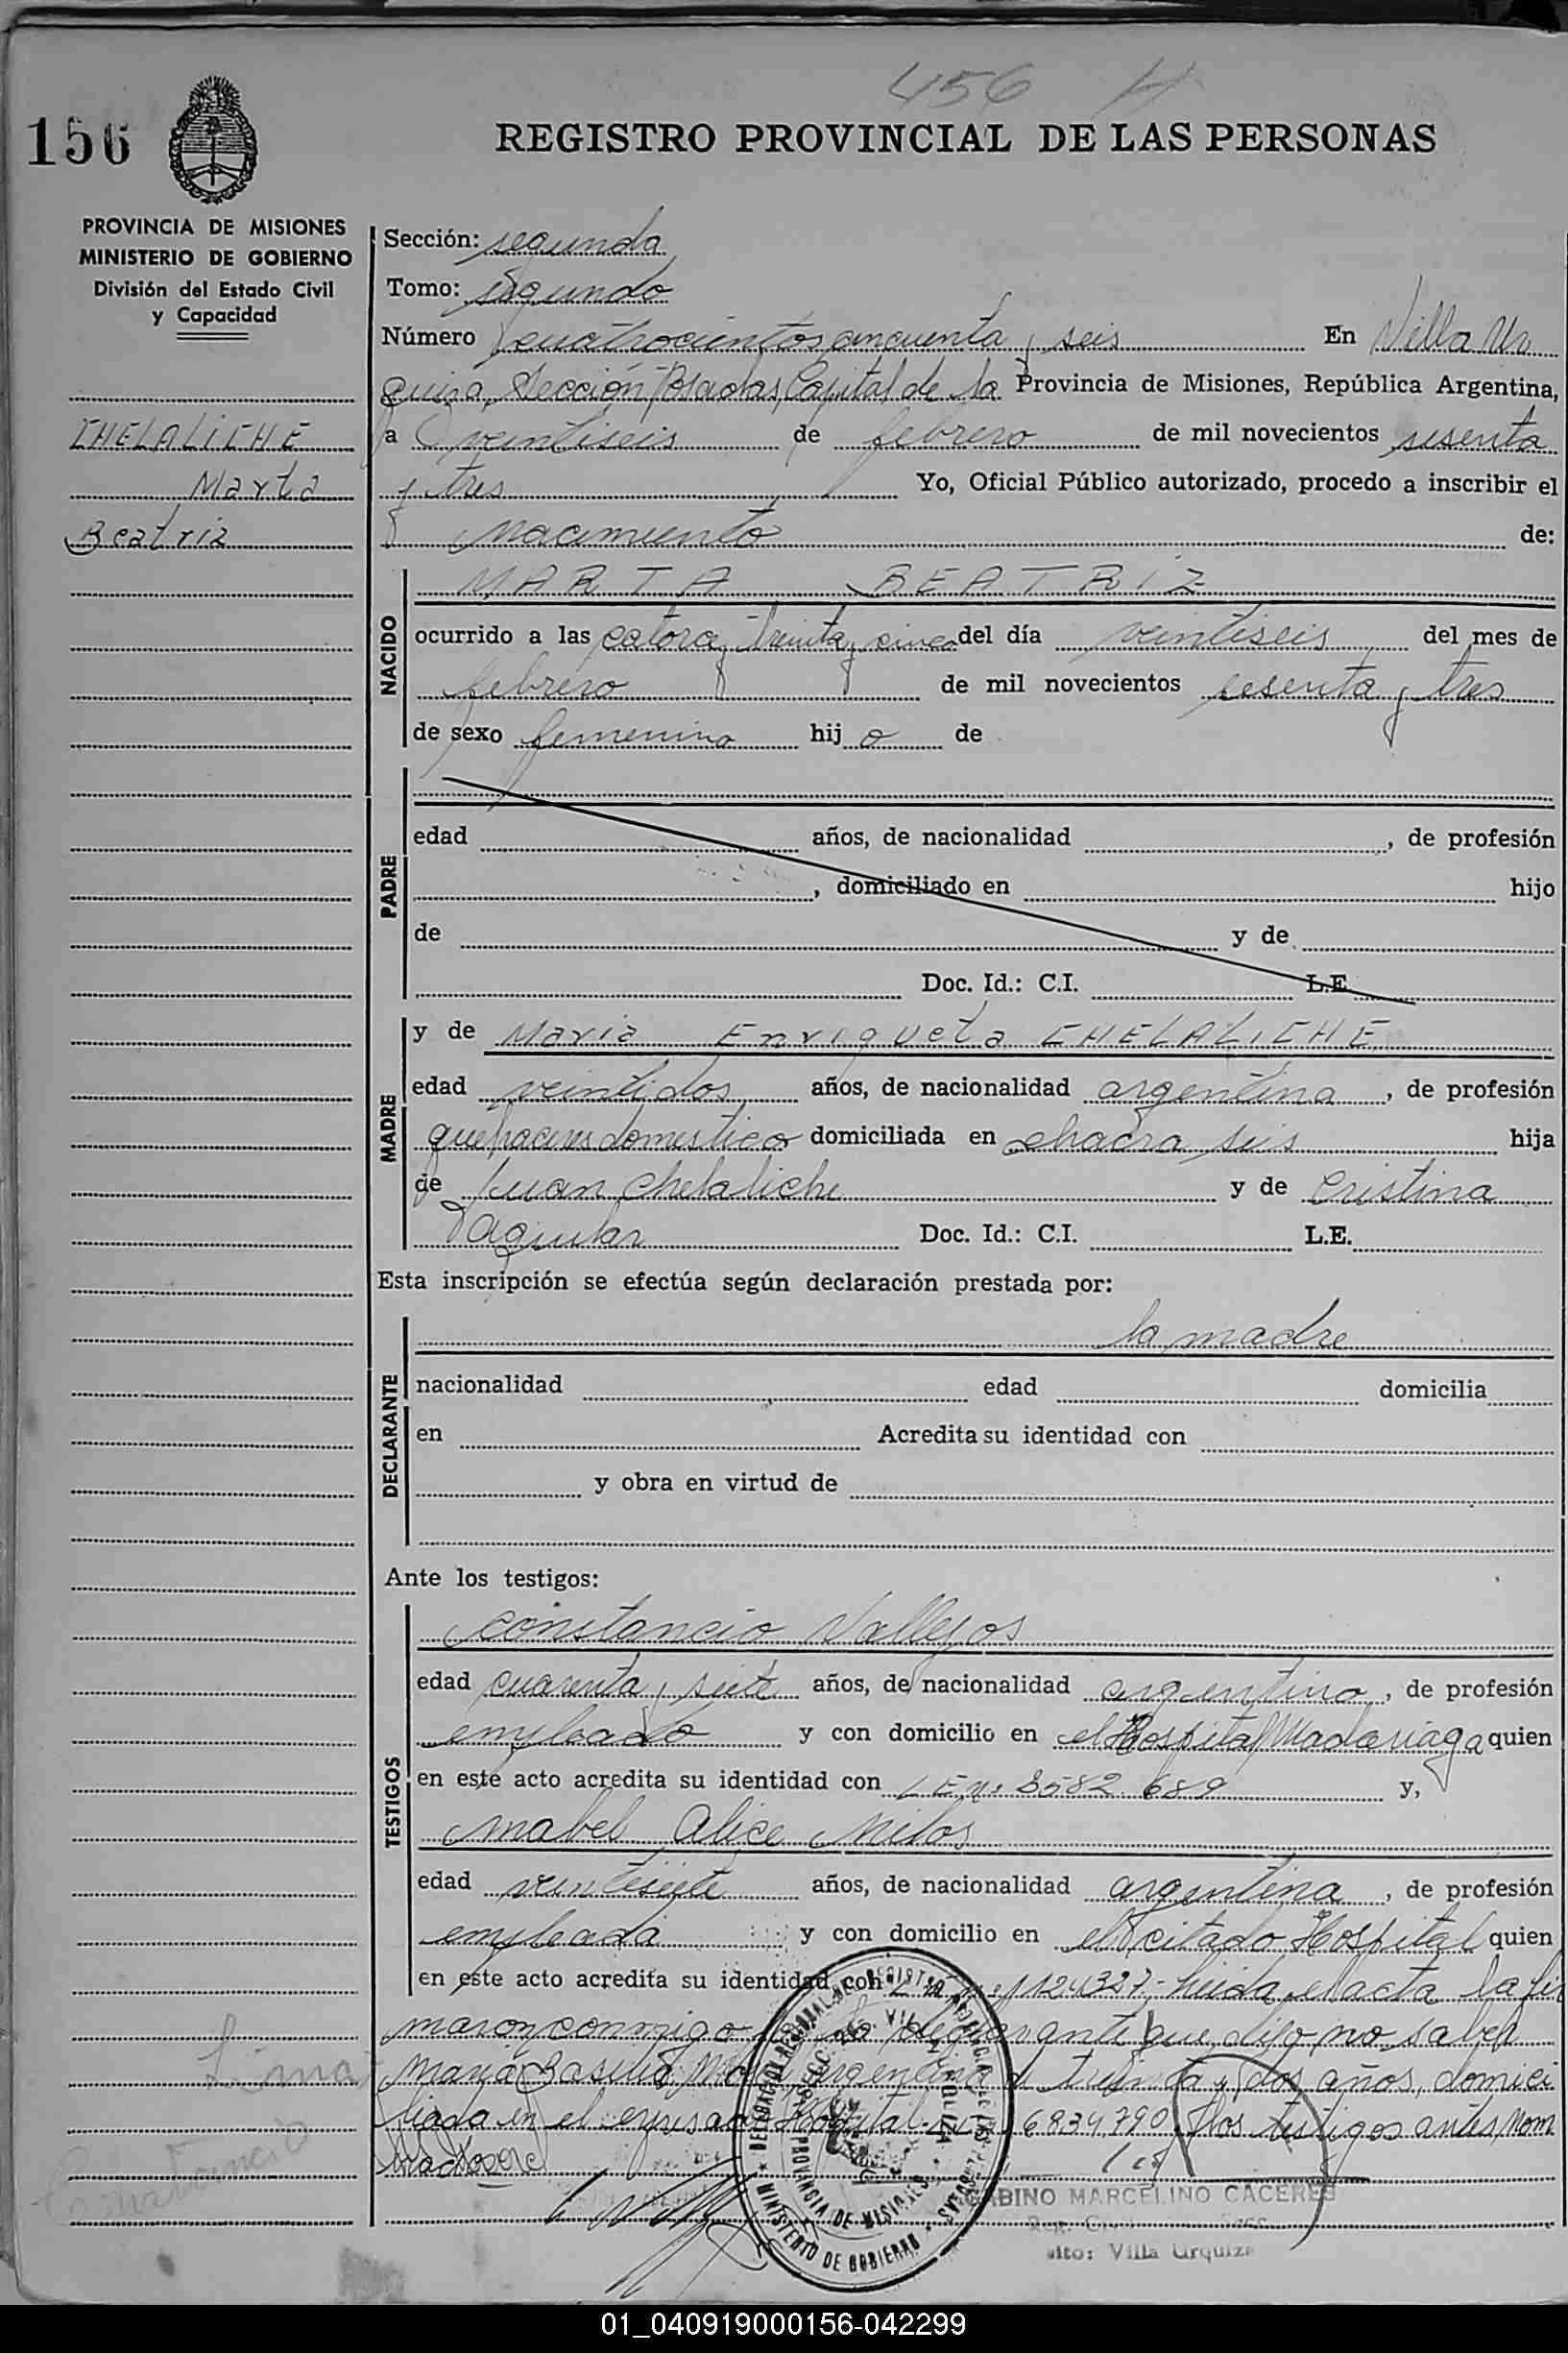 456 H
156
REGISTRO PROVINCIAL DE LAS PERSONAS
PROVINCIA DE MISIONES
MINISTERIO DE GOBIERNO
División del Estado Civil
y Capacidad
CHELALICHE
Marta
Beatriz
Sección: segunda
Tomo: segundo
Número cuatrocientos cincuenta y seis En Villa Ur
quiza, Sección Posadas, Capital de la Provincia de Misiones, República Argentina,
a veintiseis de febrero de mil novecientos sesenta
y tres Yo, Oficial Público autorizado, procedo a inscribir el
nacimiento de:
NACIDO
MARTA BEATRIZ
ocurrido a las catorce y treinta y cinco del día veintiseis del mes de
febrero de mil novecientos sesenta y tres
de sexo femenino hij o de
PADRE
edad años, de nacionalidad , de profesión
, domiciliado en hijo
de y de
Doc. Id.: C.I. L.E.
MADRE
y de Maria Enriqueta CHELALICHE
edad veintidos años, de nacionalidad argentina , de profesión
quehaceres domestico domiciliada en chacra seis hija
de Juan Chelaliche y de Cristina
Aguilar Doc. Id.: C.I. L.E.
Esta inscripción se efectúa según declaración prestada por:
DECLARANTE
la madre
nacionalidad edad domicilia
en Acredita su identidad con
y obra en virtud de
Ante los testigos:
TESTIGOS
Constancio Vallejos
edad cuarenta y siete años, de nacionalidad argentino , de profesión
empleado y con domicilio en el Hospital Madariaga quien
en este acto acredita su identidad con LE nº 3582.689 y,
Mabel Alice Milos
edad veintisiete años, de nacionalidad argentina , de profesión
empleada y con domicilio en el citado Hospital quien
en este acto acredita su identidad con 1124327- leida el acta la fir
maron conmigo que dijo no saber
Maria Basilia argentina de treinta y dos años, domici
liada en el expresado Hospital 6834.790 y los testigos antes nom
brados
GABINO MARCELINO CACERES
Villa Urquiza
DELEGACION REGIONAL DEL REGISTRO PROVINCIAL DE LAS PERSONAS
MINISTERIO DE GOBIERNO
PROVINCIA DE MISIONES
01_040919000156-042299